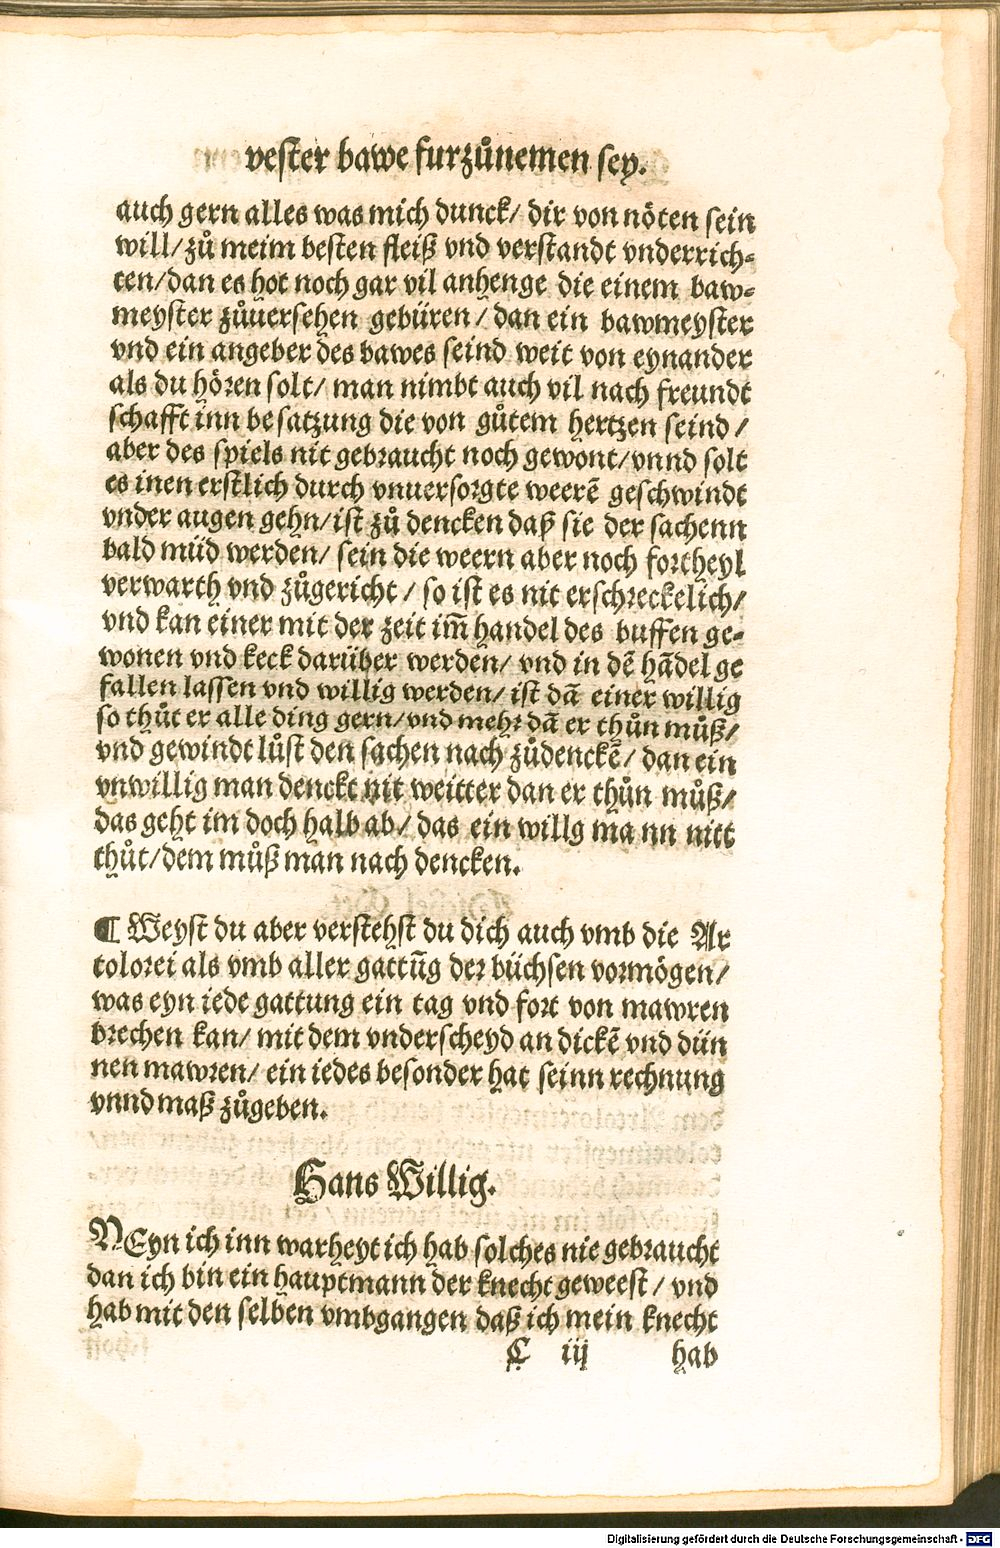 vester bawe furzůnemen sey.
auch gern alles was mich dunck/ dir von nöten sein
will/ zů meim besten fleiß vnd verstandt vnderrich-
ten/dan es hot noch gar vil anhenge die einem baw-
meyster zůuersehen gebüren / dan ein bawmeyster
vnd ein angeber des bawes seind weit von eynander
als du hören solt/ man nimbt auch vil nach freundt
schafft inn besatzung die von gůtem hertzen seind /
aber des spiels nit gebraucht noch gewont/vnnd solt
es inen erstlich durch vnuersorgte weerẽ geschwindt
vnder augen gehn/ist zů dencken daß sie der sachenn
bald müd werden/ sein die weern aber noch fortheyl
verwarth vnd zůgericht / so ist es nit erschreckelich/
vnd kan einer mit der zeit im̃ handel des buffen ge-
wonen vnd keck darüber werden/ vnd in dẽ hãdel ge
fallen lassen vnd willig werden/ ist dã einer willig
so thůt er alle ding gern/vnd mehr dã er thůn můß/
vnd gewindt lůst den sachen nach zůdenckẽ/ dan ein
vnwillig man denckt nit weitter dan er thůn můß/
das geht im doch halb ab/ das ein willg ma nn nitt
thůt/dem můß man nach dencken.
¶ Weyst du aber verstehst du dich auch vmb die Ar
tolorei als vmb aller gattũg der büchsen vormögen/
was eyn iede gattung ein tag vnd fort von mawren
brechen kan/ mit dem vnderscheyd an dickẽ vnd dün
nen mawren/ ein iedes besonder hat seinn rechnung
vnnd maß zůgeben.
Hans Willig.
NEyn ich inn warheyt ich hab solches nie gebraucht
dan ich bin ein hauptmann der knecht geweest / vnd
hab mit den selben vmbgangen daß ich mein knecht
C iij hab
Digitalisierung gefördert durch die Deutsche Forschungsgemeinschaft - DFG